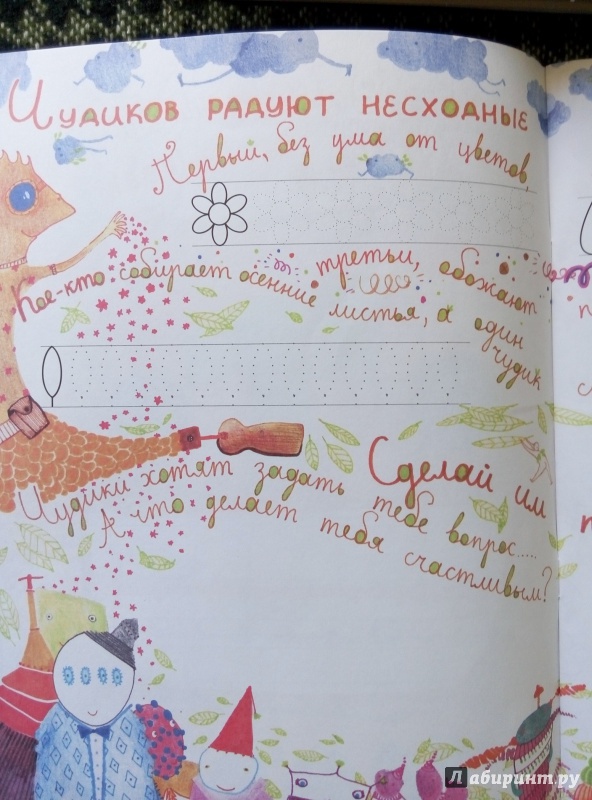 Чудиков радуют несходные
Первый, без ума от цветов,
Кое-кто собирает осенние листья, а один чудик
третьи, обожают
Сделай им
Чудики хотят задать тебе вопрос....
А что делает тебя счастливым?
Лабиринт.ру